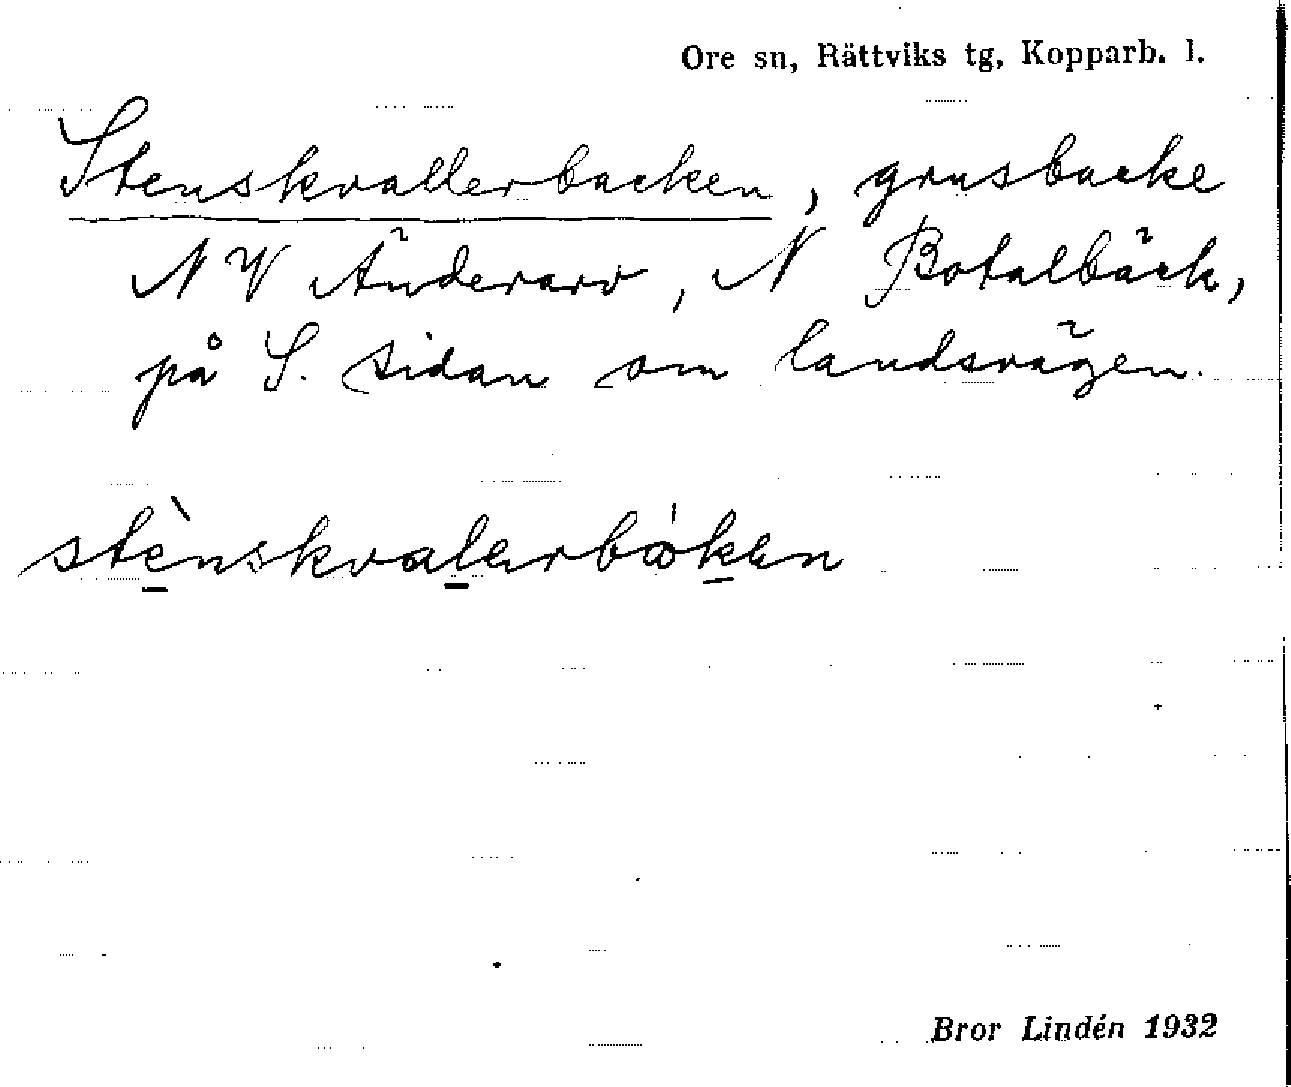 Ore sn, Rättviks tg, Kopparb. l.
Stenskvallerbacken, grusbacke
NV Änderarv, N Botalbäck,
på S. sidan om landsvägen.
stènskvalerbáken
Bror Lindén 1932